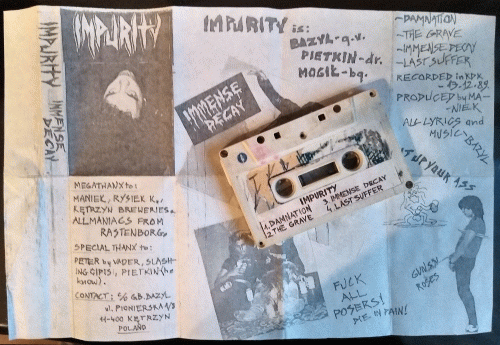 IMPURITY IMMENSE DECAY
IMPURITY
MEGATHANX to:
MANIEK, RYSIEK K.,
KĘTRZYN BREWERIES.
ALL MANIACS FROM
RASTENBORG.
SPECIAL THANX to:
PETER by VADER, SLASH-
ING GIPISI, PIETKIN (he
know).
CONTACT:
GB. BAZYL
ul. PIONIERSKA
11-400 KĘTRZYN
POLAND
IMPURITY is:
BAZYL - g.v.
PIETKIN - dr.
MOGIŁ - bg.
IMMENSE
DECAY
IMPURITY
1. DAMNATION
2. THE GRAVE
3. IMMENSE DECAY
4. LAST SUFFER
FUCK
ALL
POSERS!
DIE IN PAIN!
- DAMNATION
- THE GRAVE
- IMMENSE DECAY
- LAST SUFFER
RECORDED in KDK
PRODUCED by MA-
NIEK
ALL LYRICS and
MUSIC - BAZYL
UP YOUR ASS
GUNS N'
ROSES